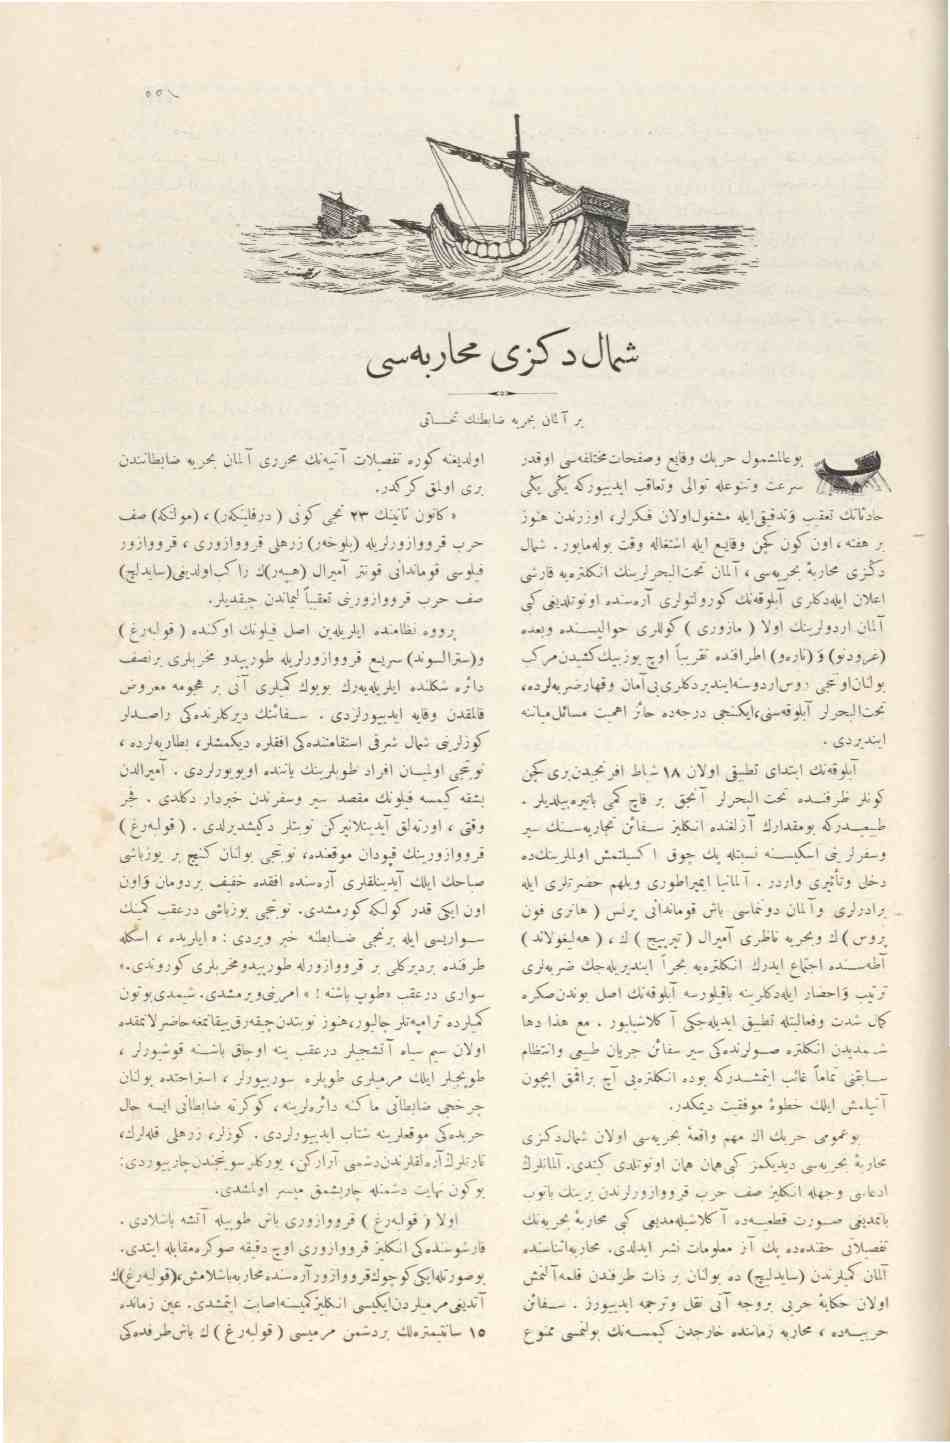 ٥٥٨
شمال دكزی محاربه‌سی
بر آلمان بحریه ضابطنك تحسساتی
بوعالمشمول حربك وقایع وصفحات مختلفه‌سی اوقدر
سرعت وتنوعله توالی وتعاقب ایدییوركه یكی یكی
حادثاتك تعقیب وتدقیقی‌ایله مشغول‌اولان فكرلر، اوزرندن هنوز
بر هفته ، اون كون كچن وقایع ایله اشتغاله وقت بوله‌مایور . شمال
دكزی محاربهٔ بحریه‌سی ، آلمان تحت‌البحرلرینك انكلتره‌یه قارشی
اعلان ایله‌دكلری آبلوقه‌نك كورولتولری آره‌سنده اونوتلدیغی كبی
آلمان اردولرینك اولا ( مازوری ) كوللری حوالیسنده وبعده
(غرودنو) و (ناره‌و) اطرافنده تقریباً اوچ یوزبیك كشیدن مركب
بولنان اونجی روس اردوسنه ایندیردكلری بی‌امان وقهار ضربه‌لرده،
تحت‌البحرلر آبلوقه‌سنی، ایكنجی درجه‌ده حائز اهمیت مسائل میاننه
ایندیردی .
آبلوقه‌نك ابتدای تطبیقی اولان ١٨ شباط افرنجیدن‌بری كچن
كونلر ظرفنده تحت البحرلر آنجق بر قاچ كمی باتیره‌بیلدیلر .
طبیعیدركه بومقدارك آزلغنده انكلیز سفائن تجاریه‌سنك سیر
وسفرلرینی اسكیسنه نسبتله پك چوق اكسیلتمش اولملرینك‌ده
دخل وتأثیری واردر . آلمانیا ایمپراطوری ویلهم حضرتلری ایله
برادرلری وآلمان دونماسی باش قوماندانی پرنس ( هانری فون
پروس ) ك وبحریه ناظری آمیرال ( تیرپیچ ) ك ، ( هه‌لیغولاند )
آطه‌سنده اجتماع ایدرك انكلتره‌یه بحراً ایندیریله‌جك ضربه‌لری
ترتیب واحضار ایله‌دكلرینه باقیلورسه آبلوقه‌نك اصل بوندن‌صكره
كمال شدت وفعالیتله تطبیق ایدیله‌جكی آكلاشیلیور . مع هذا دها
شیمدیدن انكلتره صولرنده‌كی سیر سفائن جریان طبیعی وانتظام
سابقنی تماماً غائب ایتمشدركه بوده انكلتره‌یی آچ براقمق ایچون
آتیلمش ایلك خطوهٔ موفقیت دیمكدر.
بوعمومی حربك اك مهم واقعهٔ بحریه‌سی اولان شمال‌دكزی
محاربهٔ بحریه‌سی دیدیكمز كبی همان همان اونوتلدی كیتدی. آلمانلرك
ادعاسی وجهله انكلیز صف حرب قرووازورلرندن برینك باتوب
باتمدیغی صورت قطعیه‌ده آكلاشیله‌مدیغی كبی محاربهٔ بحریه‌نك
تفصیلاتی حقنده‌ده پك آز معلومات نشر ایدلدی. محاربه‌اثناسنده
آلمان كمیلرندن (سایدلیچ) ده بولنان بر ذات طرفندن قلمه آلنمش
اولان حكایهٔ حربی بروجه آتی نقل وترجمه ایدییورز . سفائن
حربیه‌ده ، محاربه زماننده خارجدن كیمسه‌نك بولنمسی ممنوع
اولدیغنه كوره تفصیلات آتیه‌نك محرری آلمان بحریه ضابطانندن
بری اولمق كركدر.
« كانون ثانینك ٢٣ نجی كونی ( درفلینكه‌ر ) ، (مولتكه) صف
حرب قرووازورلریله (بلوخه‌ر) زرهلی قرووازوری ، قرووازور
فیلوسی قوماندانی قونتر آمیرال (هیپه‌ر)ك راكب‌اولدیغی(سایدلیچ)
صف حرب قرووازورینی تعقیباً لیماندن چیقدیلر.
پرووه نظامنده ایلریله‌ین اصل فیلونك اوكنده ( قولبه‌رغ )
و(سترالسوند) سریع قرووازورلریله طورپیدو مخربلری برنصف
دائره شكلنده ایلریله‌یه‌رك بویوك كمیلری آنی بر هجومه معروض
قالمقدن وقایه ایدییورلردی . سفائنك دیركلرنده‌كی راصدلر
كوزلرینی شمال شرقی استقامتنده‌كی افقلره دیكمشلر ، بطاریه‌لرده ،
نوبتجی اولمیان افراد طوپلرینك یاننده اویویورلردی . آمیرالدن
بشقه كیمسه فیلونك مقصد سیر وسفرندن خبردار دكلدی . فجر
وقتی ، اورته‌لق آیدینلانیركن نوبتلر دكیشدیرلدی . ( قولبه‌رغ )
قرووازورینك قپودان موقعنده، نوبتجی بولنان كنج بر یوزباشی
صباحك ایلك آیدینلقلری آره‌سنده افقده خفیف بردومان واون
اون ایكی قدر كولكه كورمشدی. نوبتجی یوزباشی درعقب كمینك
سواریسی ایله برنجی ضابطنه خبر ویردی : « ایلریده ، اسكله
طرفنده بردیركلی بر قرووازورله طورپیدومخربلری كوروندی.»
سواری درعقب «طوپ باشنه ! » امرینی‌ویرمشدی. شیمدی‌بوتون
كمیلرده ترامپه‌تلر چالییور، هنوز نوبتدن‌چیقه‌رق‌ییقانمغه‌حاضرلانمقده
اولان سیم سیاه آتشجیلر درعقب ینه اوجاق باشنه قوشیورلر ،
طوپجیلر ایلك مرمیلری طوپلره سورییورلر ، استراحتده بولنان
چرخجی ضابطانی ماكنه دائره‌لرینه ، كوكرته ضابطانی ایسه حال
حربده‌كی موقعلرینه شتاب ایدییورلردی . كوزلر، زرهلی قله‌لرك،
آره‌لقلرندن‌دشمنی آراركن، یوركلر سوینجندن‌چارپییوردی:
بوكون نهایت دشمنله چارپیشمق میسر اولمشدی.
اولا ( قولبه‌رغ ) قرووازوری باش طوپیله آتشه باشلادی .
قارشوسنده‌كی انكلیز قرووازوری اوچ دقیقه صوكره‌مقابله ایتدی.
بوصورتله‌ایكی كوچوك‌قرووازور آره‌سنده محاربه‌باشلامش،(قولبه‌رغ)ك
آتدیغی مرمیلردن ایكیسی انكلیزكمیسنه‌اصابت ایتمشدی. عین زمانده
١٥ سانتیمتره‌لك بردشمن مرمیسی ( قولبه‌رغ ) ك باش‌طرفده‌كی